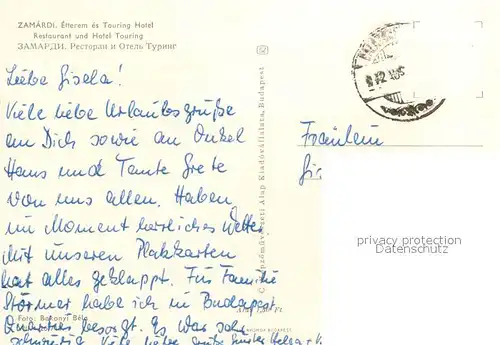 ZAMÁRDI. Étterem és Touring Hotel
Restaurant und Hotel Touring
ЗАМАРДИ. Ресторан и Отель Туринг
Liebe Gisela!
Viele liebe Urlaubsgrüße
an Dich sowie an Onkel
Hans und Tante Grete
von uns allen. Haben
im Moment herrliches Wetter.
Mit unseren Platzkarten
hat alles geklappt. Für Familie
Störmer habe ich in Budapest
Quartier besorgt. Es war sehr
schwierig. Viele liebe Grüße
Foto: Bakonyi Béla
Képzőművészeti Alap Kiadóvállalata, Budapest
Fräulein
Gis
privacy protection
Datenschutz